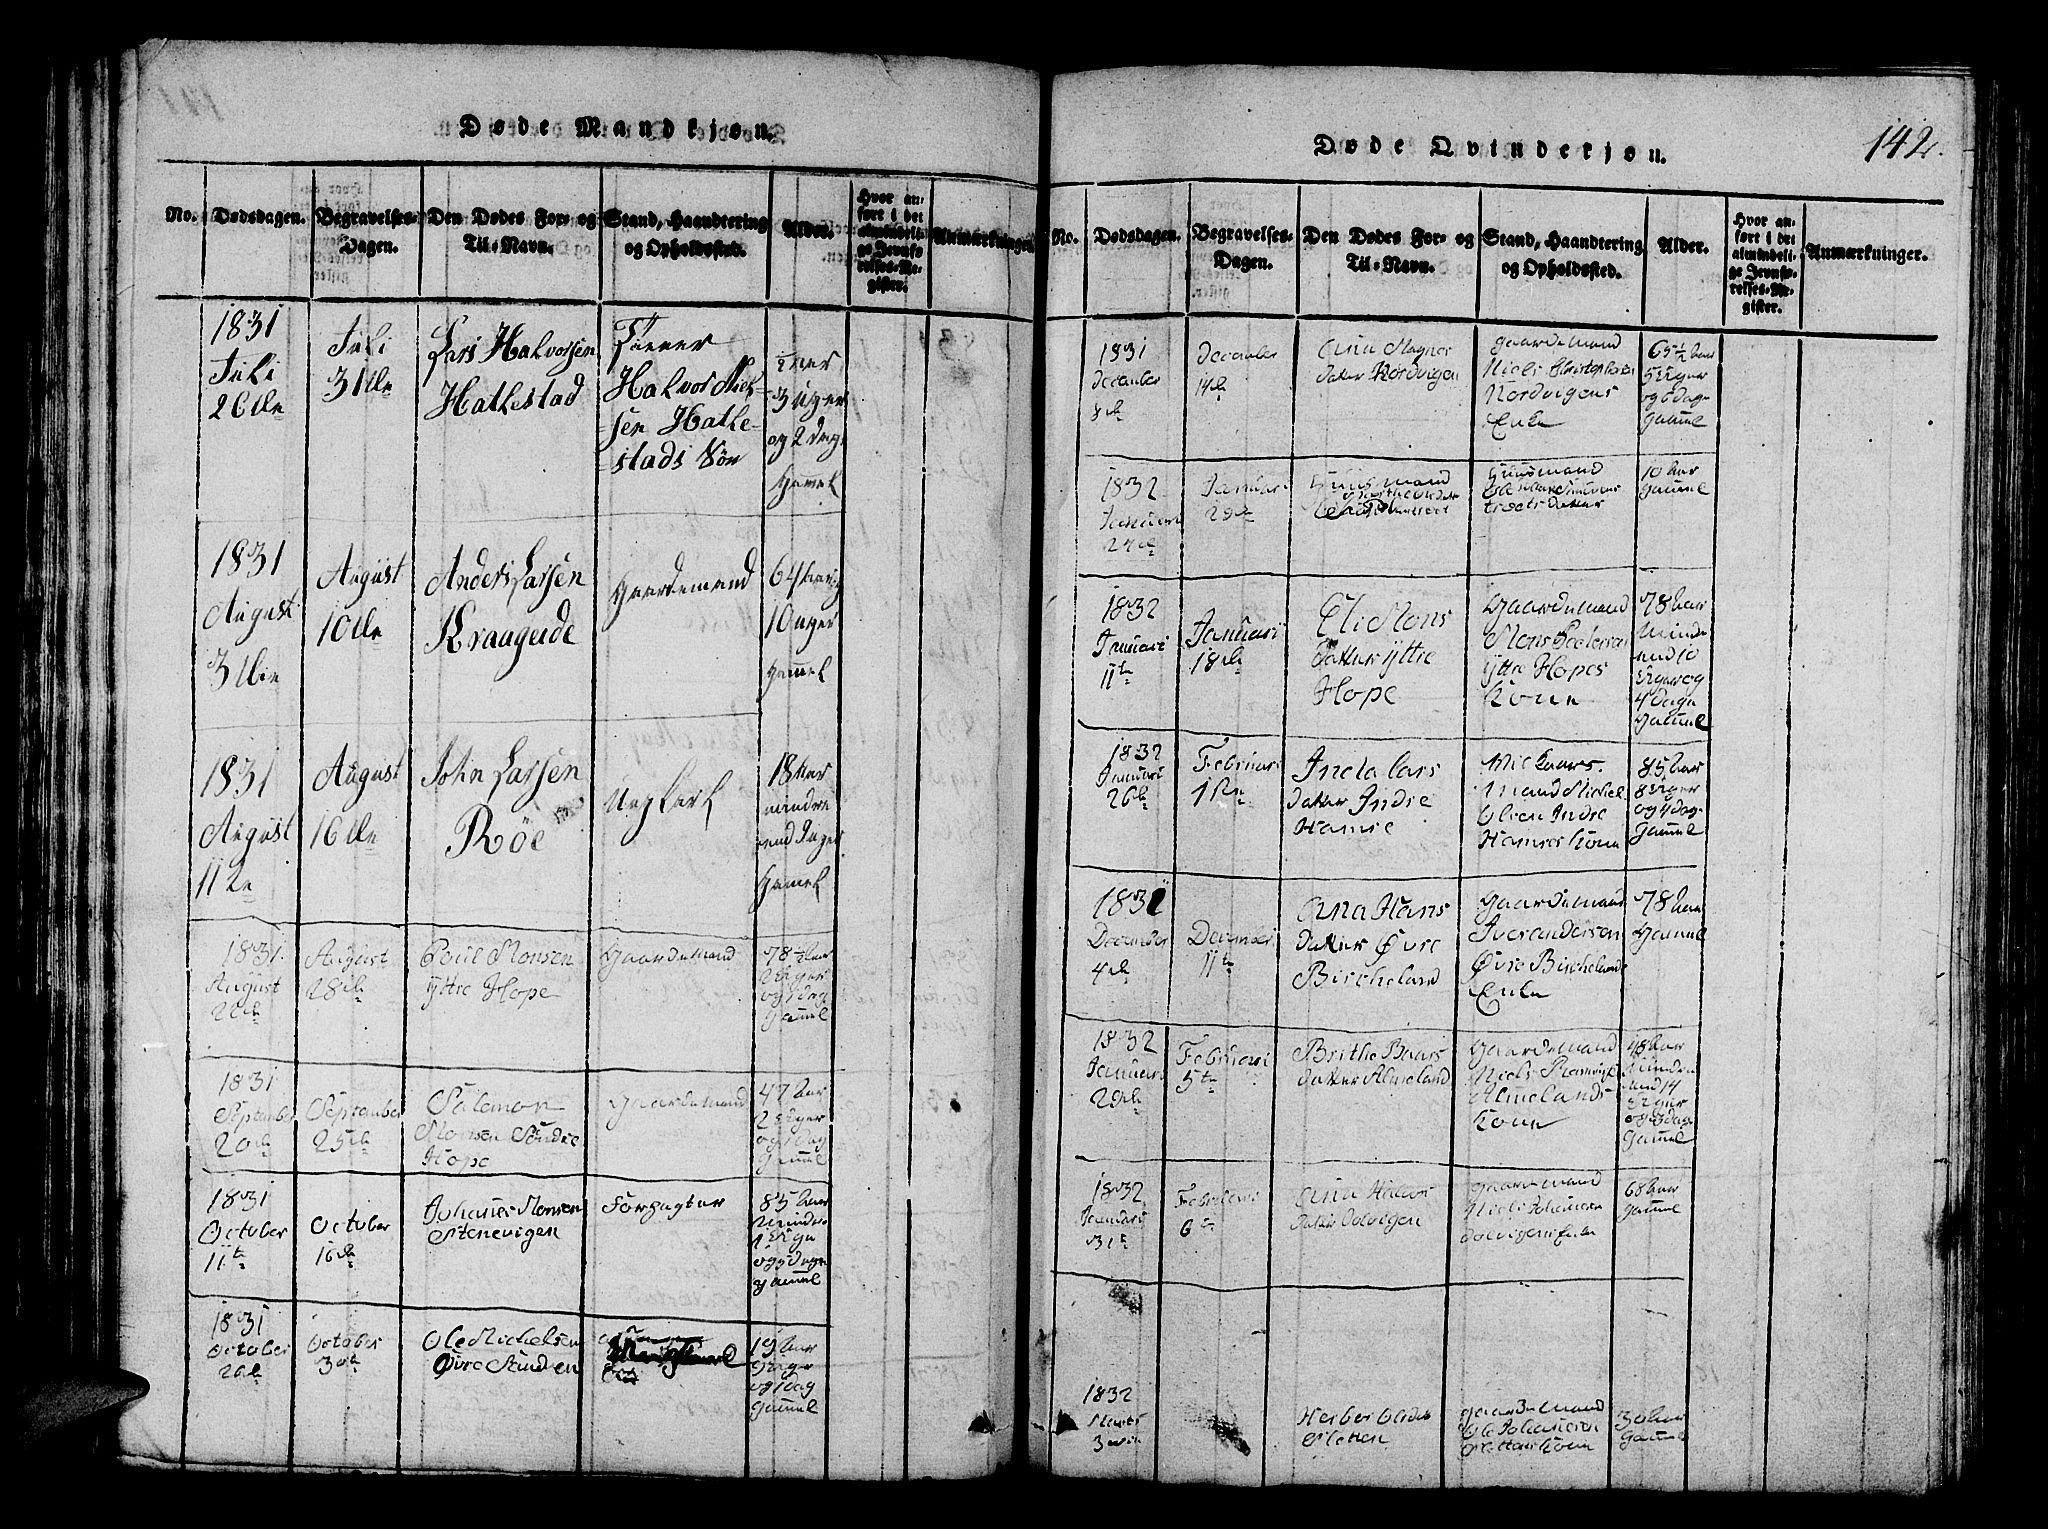 Døde Mandkjøn.
No.
Dødsdagen.
Begravelses-
Dagen.
Den Dødes For- og
Til-Navn.
Stand, Haandtering
og Opholdssted.
Alder.
Hvor an-
ført i det
almindeli-
ge Jevnfø-
relses-Re-
gister.
Anmærkninger.
1831
Juli
26de
Juli
31de
Lars Halvorsen
Hatlestad
Halvor
sen Hatle-
stads Søn
3 Uger
og 2 Dag
gamel
1831
August
3die
August
10de
Anders Larsen
Kraageide
Gaardemand
64 Aar
10 uger
gamel
1831
August
11te
August
16de
John Larsen
Röe
Ungkarl
18 Aar
mindre
end Uger
gamel
1831
August
22de
August
28de
Poul Monsen
Yttre Hope
Gaardemand
78½ Aar
2 Uger
og 1 dag
Gammel
1831
September
20de
September
25de
Salamon
Monsen Söndre
Hope
Gaardemand
47 Aar
2 Uger
og 1 dag
Gammel
1831
October
11te
October
16de
Johannes Monsen
Stenevigen
Forpagter
85 Aar
Mindre
1 Uge
og 5 dage
gammel
1831
October
26de
October
30de
Ole Michelsen
Øvre Tunden
19 Aar
Uger
og 1 dag
gammel
Døde Qvindekjøn.
142.
No.
Dødsdagen.
Begravelses-
Dagen.
Den Dødes For- og
Til-Navn.
Stand, Haandtering
og Opholdssted.
Alder.
Hvor an-
ført i det
almindeli-
ge Jevnfø-
relses-Re-
gister.
Anmærkninger.
1831
December
8de
December
14de
Ana Magnes
datter Nordvigen
Gaardemand
Niels Christophersen
Nordvigens
Enke
65½ Aar
5 Uger
og 6 dage
Gammel
1832
Januari
24de
Januari
29de
Huusmand
Huusmand
datter
10 Aar
Gammel
1832
Januari
11te
Januari
18de
Eli Mons
datter Yttre
Hope
Gaardemand
Mons Pedersen
Yttre Hopes
Kone
78 Aar
Mindre
end 10
Uger og
4 dage
Gammel
1832
Januari
26de
Februari
1ste
Lars
datter Indre
Hamre
mand Michel
Olsen Indre
Hamres Kone
85 Aar
8 Uger
og 4 dag
Gammel
1831
December
4de
December
11te
Ana Hans
datter Øvre
Bircheland
Gaardemand
Iver Andersen
Øvre Birchelands
Enke
78 Aar
Gammel
1832
Januari
29de
Februari
5te
Brithe Baars
datter Almeland
Gaardemand
Niels
Almelands
Kone
48 Aar
Mindre
end 14
Uger
og 3 dage
Gammel
1832
Januari
31te
Februari
6te
Ana Halvors
datter Dolvigen
Gaardemand
Niels Johannesen
Dolvigens Enke
68 Aar
Gammel
1832
Marts
3die
Herber
Sletten
Gaardemand
Ole Johannesen
Slettens Kone
30 Aar
Gammel